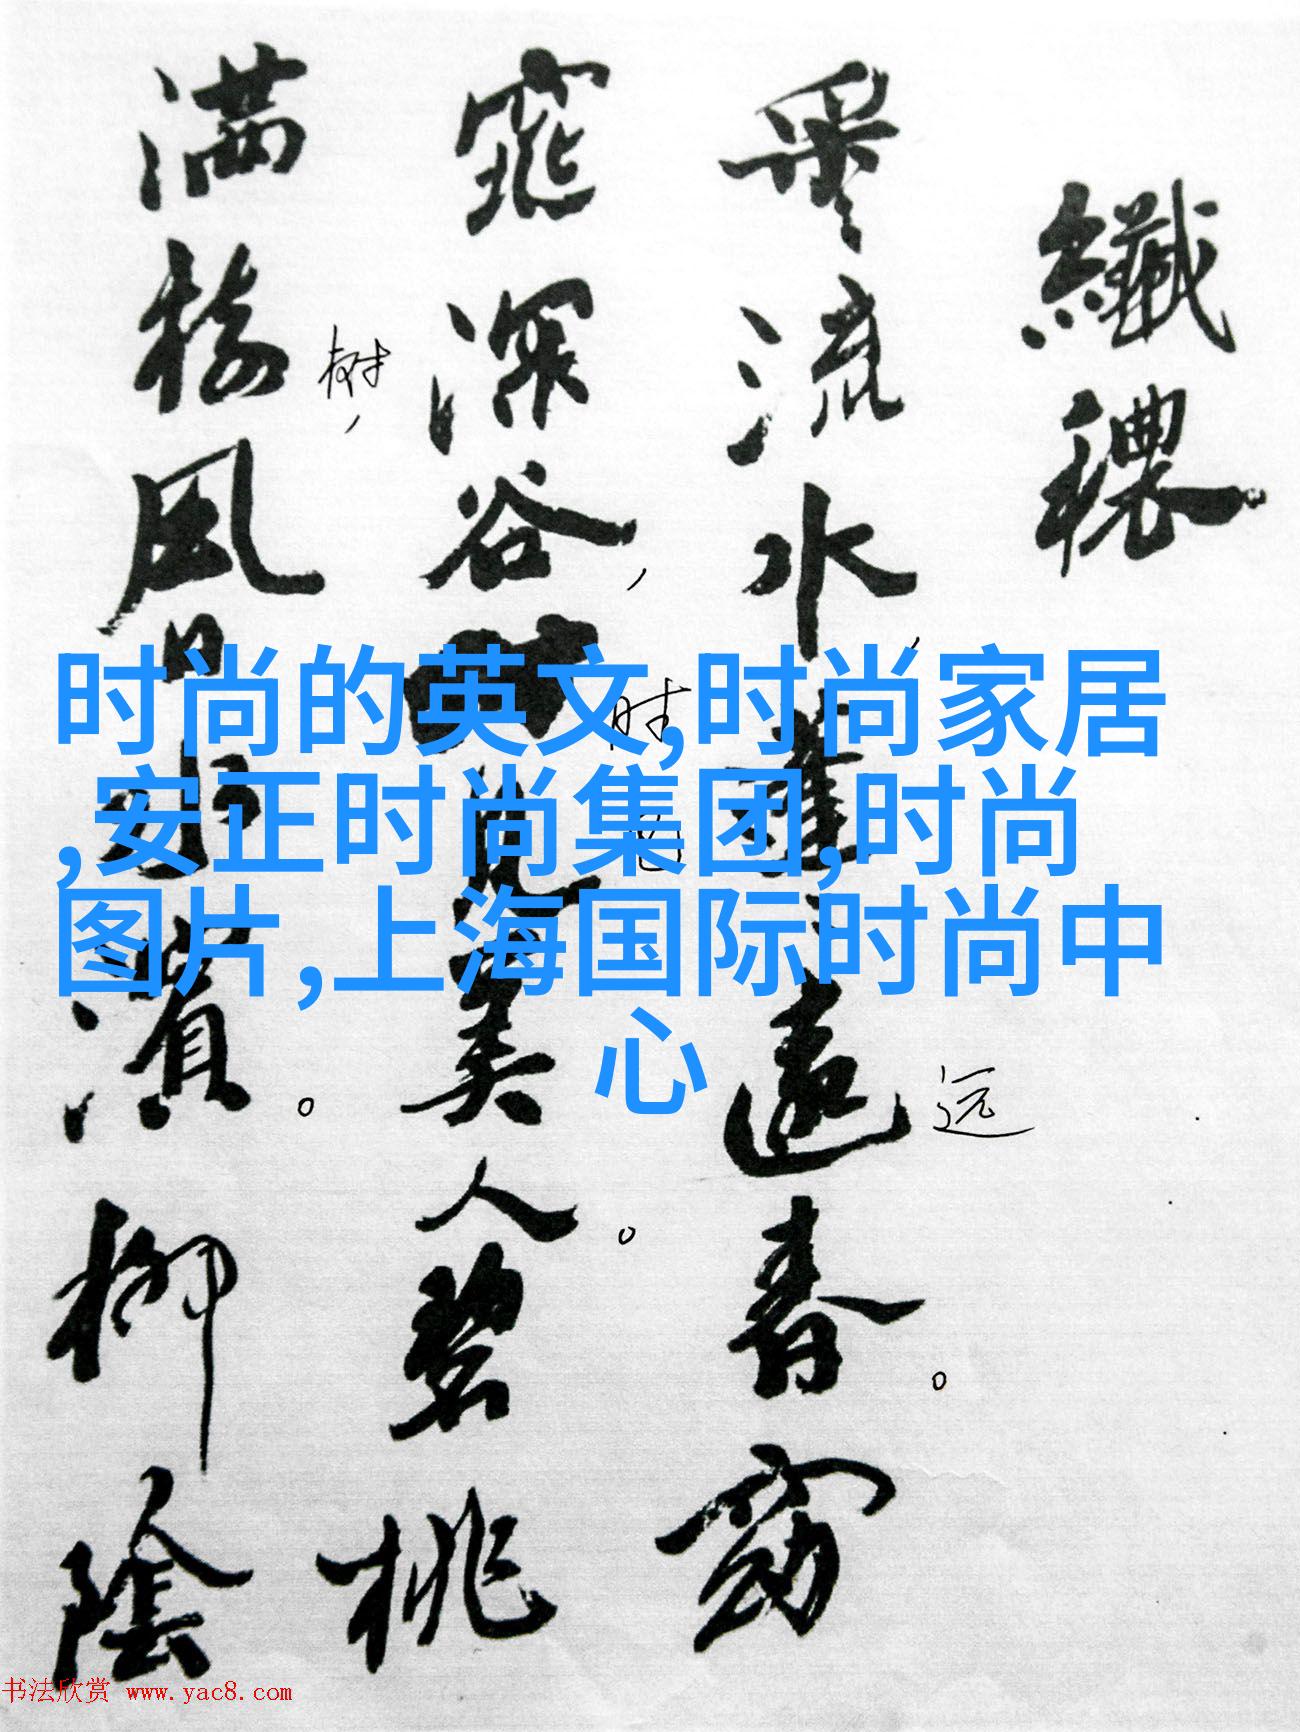 纖穠
采々流水，蓬々遠春。窈
窕深谷，時見美人。碧桃
满樹，風日水濱。柳陰
树
时
远
时尚的英文,时尚家居
,安正时尚集团,时尚
图片,上海国际时尚中
心
书法欣赏 www.yac8.com